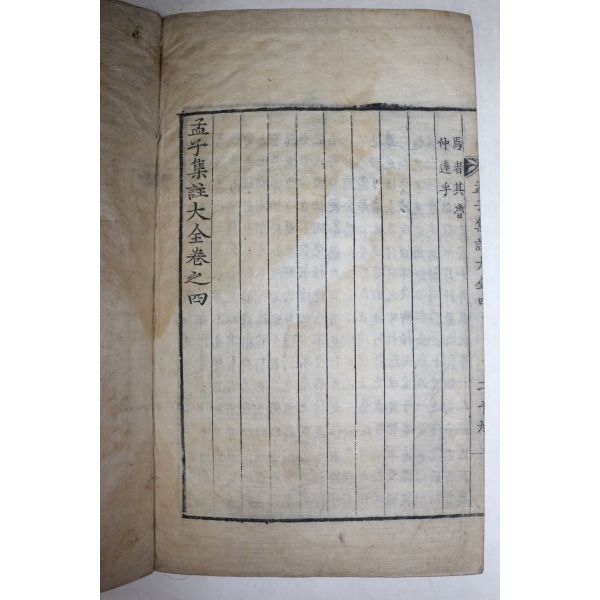 孟子集註大全四
二十九
焉者其魯
仲連乎
孟子集註大全卷之四